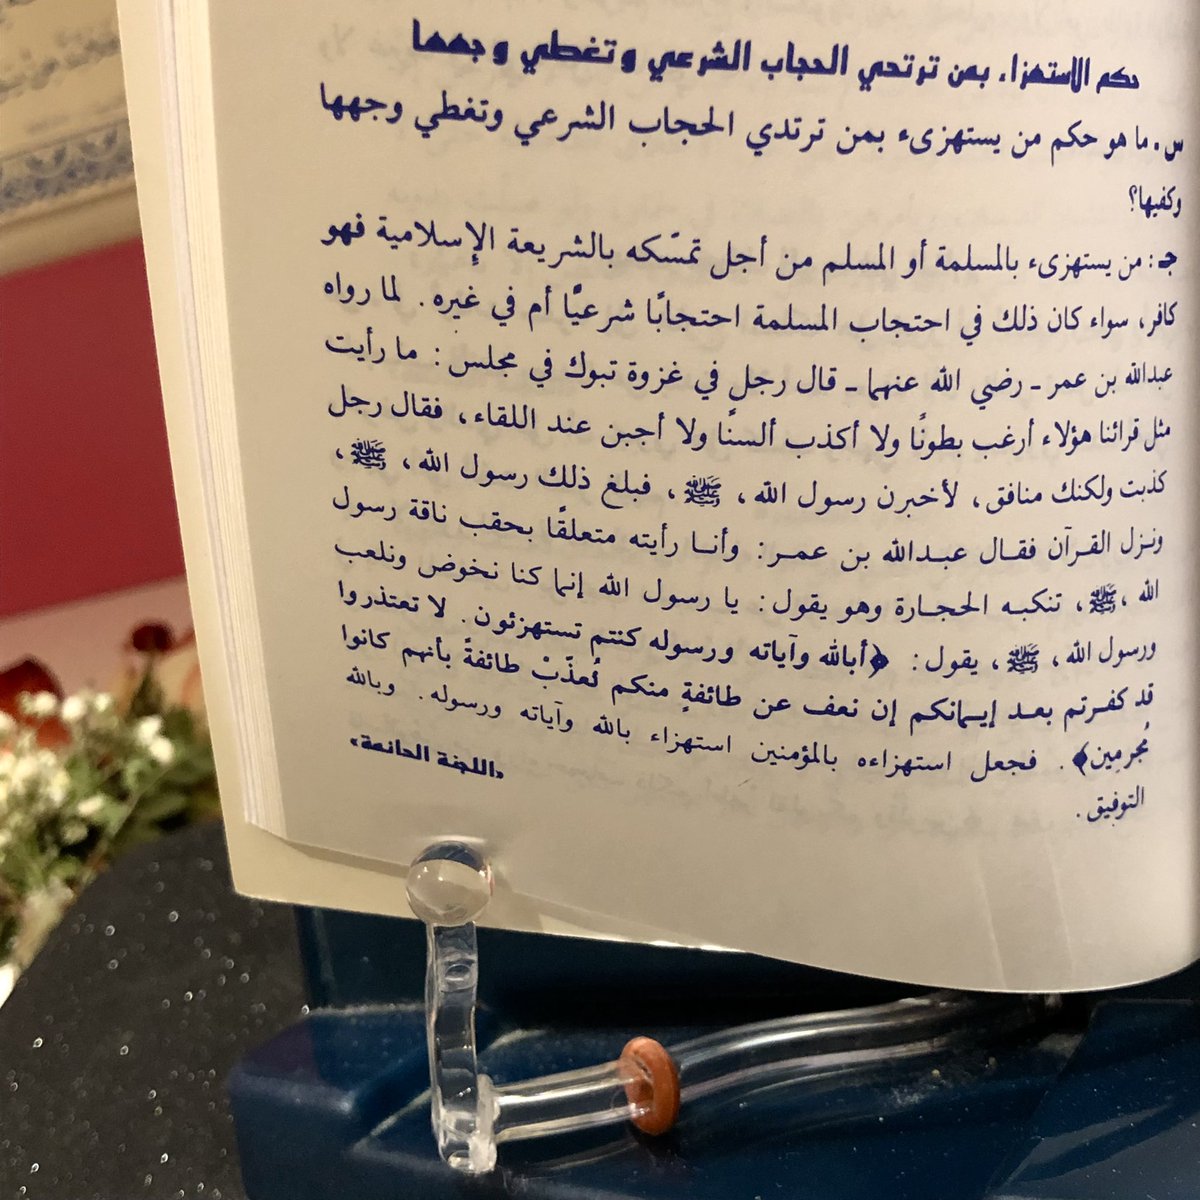 حكم الاستهزاء بمن ترتدي الحجاب الشرعي وتغطي وجهها
س . ما هو حكم من يستهزىء بمن ترتدي الحجاب الشرعي وتغطي وجهها
وكفيها؟
جـ : من يستهزىء بالمسلمة أو المسلم من أجل تمسّكه بالشريعة الإسلامية فهو
كافر، سواء كان ذلك في احتجاب المسلمة احتجابًا شرعيًّا أم في غيره . لما رواه
عبدالله بن عمر ـ رضي الله عنهما ـ قال رجل في غزوة تبوك في مجلس : ما رأيت
مثل قرائنا هؤلاء أرغب بطونًا ولا أكذب ألسنًا ولا أجبن عند اللقاء، فقال رجل
كذبت ولكنك منافق، لأخبرن رسول الله، ﷺ، فبلغ ذلك رسول الله، ﷺ،
ونـزل القـرآن فقـال عبـدالله بن عمـر : وأنـا رأيته متعلقًا بحقب ناقة رسول
الله، ﷺ، تنكبـه الحجـارة وهو يقول : يا رسول الله إنما كنا نخوض ونلعب
ورسول الله، ﷺ، يقول : ﴿أبالله وآياته ورسوله كنتم تستهزئون . لا تعتذروا
قد كفـرتم بعـد إيـمانكم إن نعف عن طائفةٍ منكم نُعذّبْ طائفةً بأنهم كانوا
مُجرمِين﴾ . فجعل استهزاءه بالمؤمنين استهزاء بالله وآياته ورسوله . وبالله
التوفيق .
«اللجنة الدائمة»